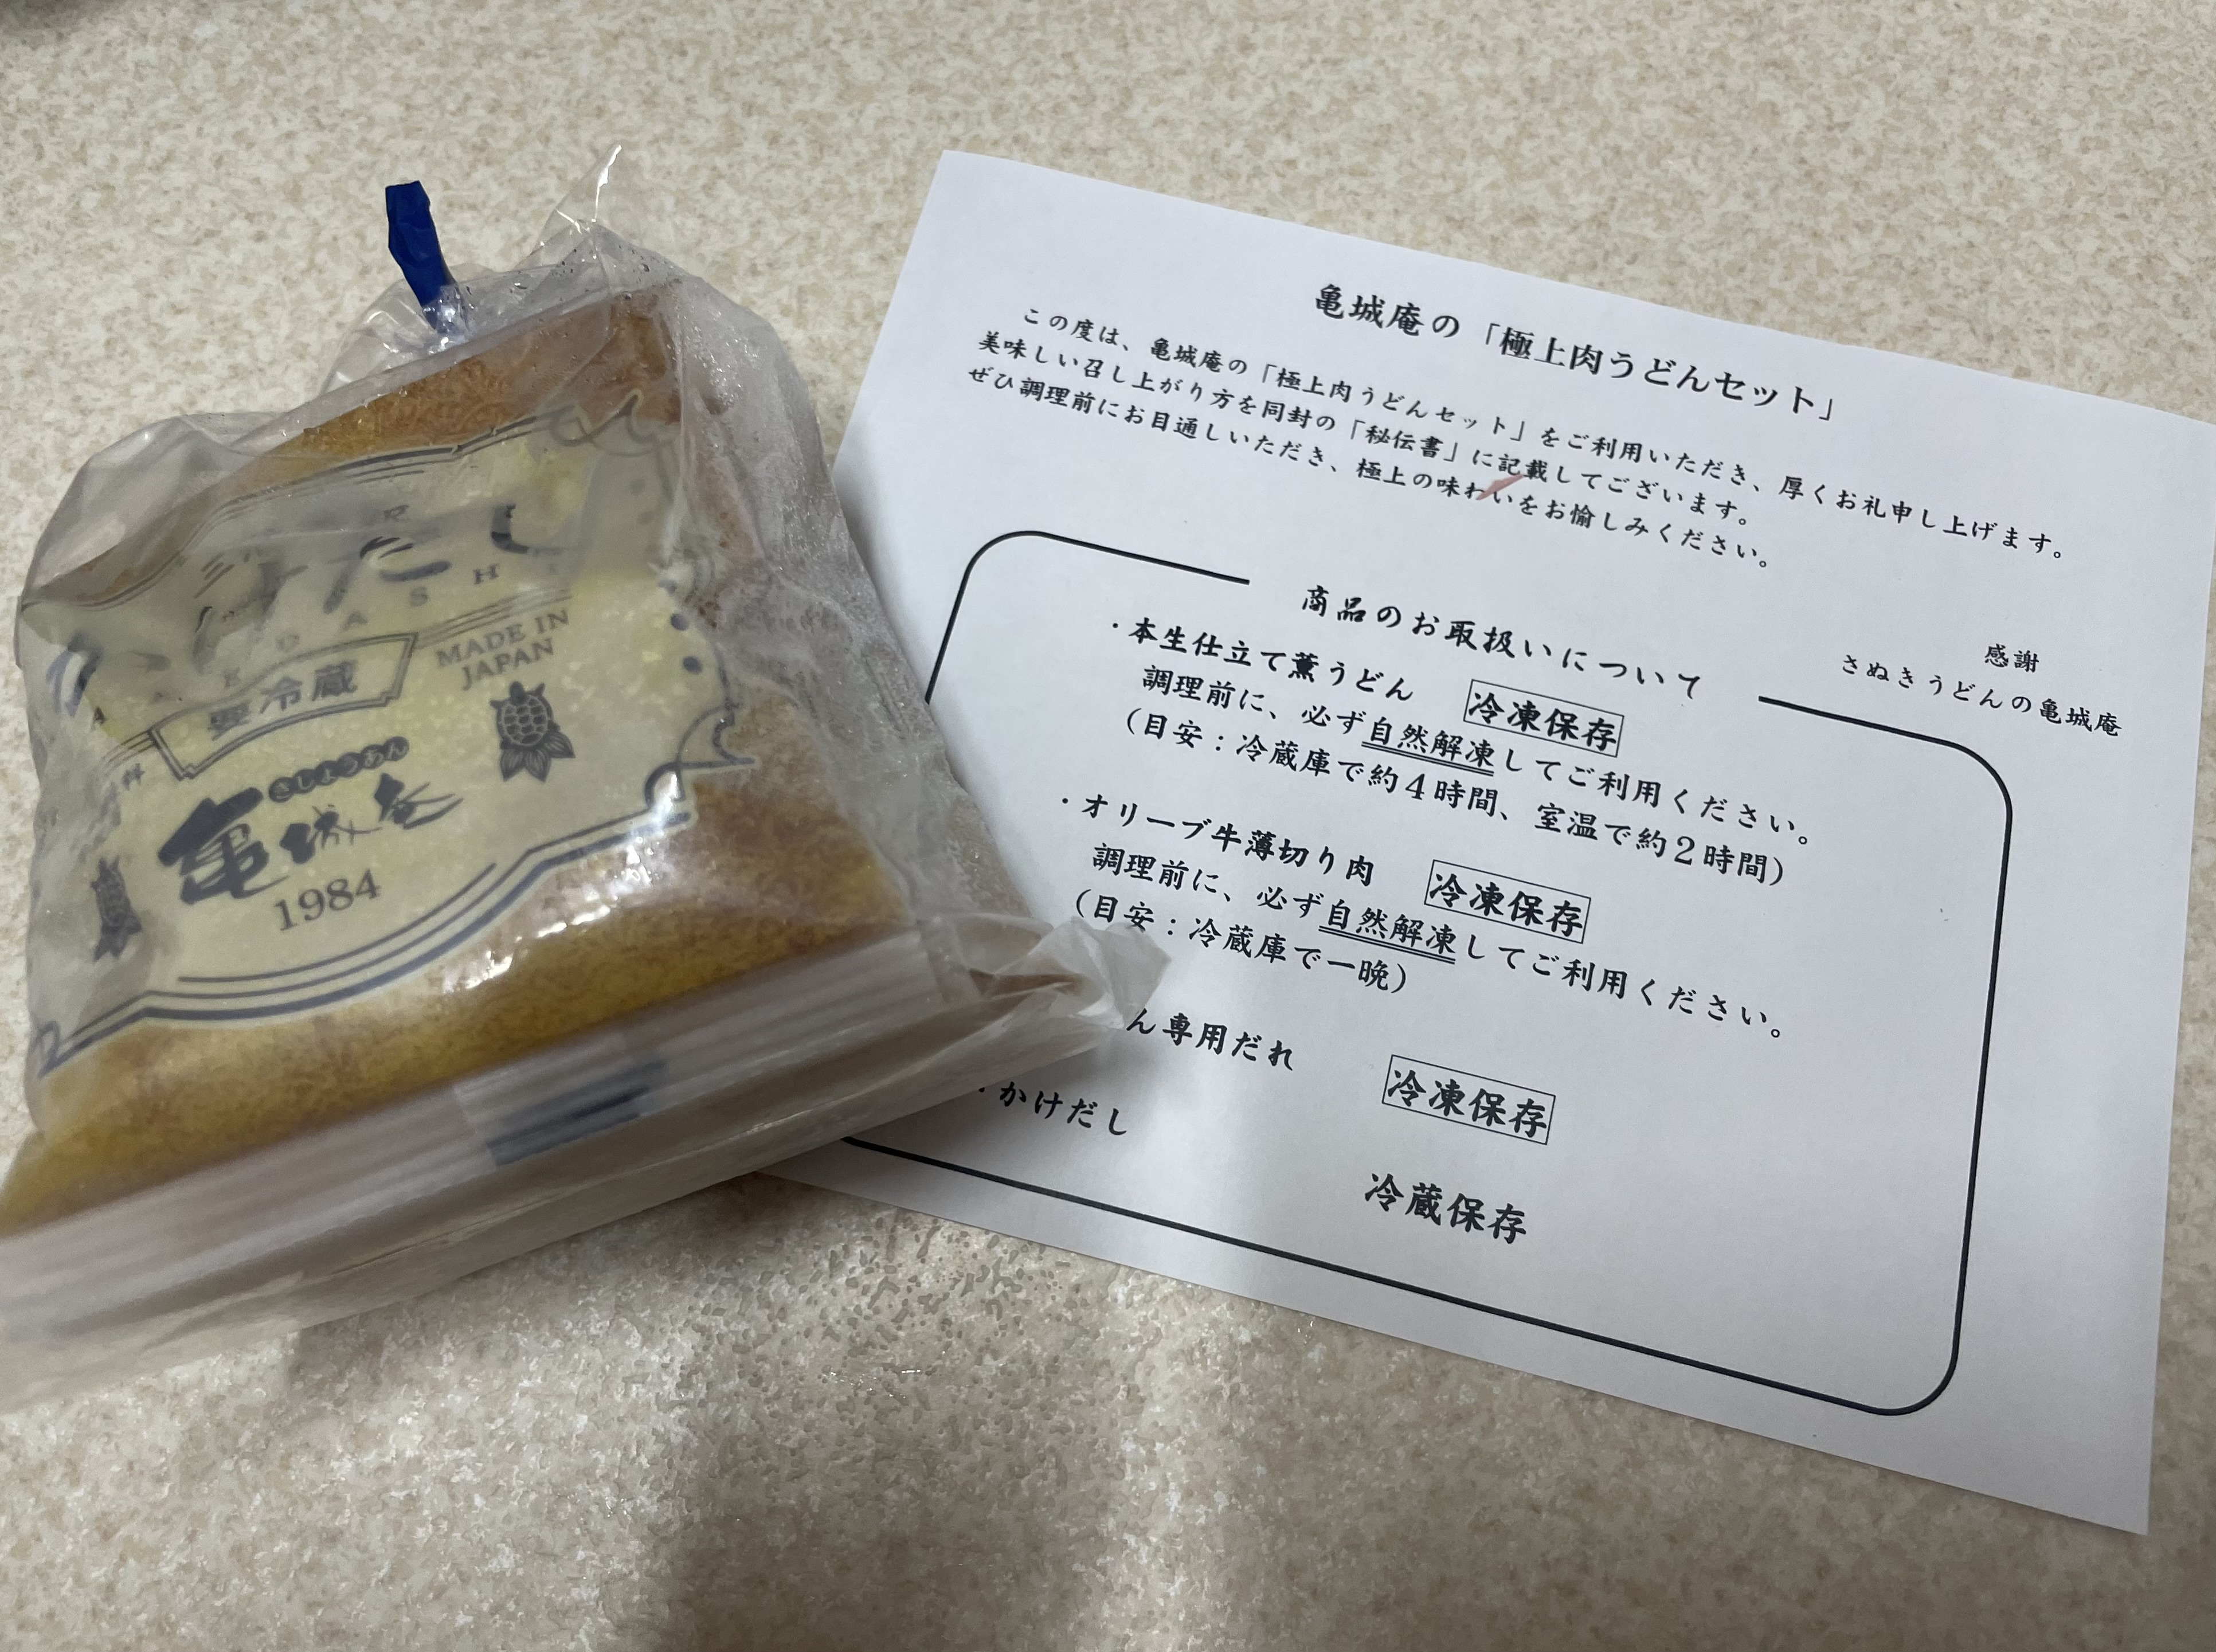 けだし
K E D A S H I
MADE IN
JAPAN
要冷蔵
きしょうあん
亀城庵
1984
亀城庵の「極上肉うどんセット」
この度は、亀城庵の「極上肉うどんセット」をご利用いただき、厚くお礼申し上げます。
美味しい召し上がり方を同封の「秘伝書」に記載してございます。
ぜひ調理前にお目通しいただき、極上の味わいをお愉しみください。
感謝
さぬきうどんの亀城庵
商品のお取扱いについて
・本生仕立て薫うどん 冷凍保存
調理前に、必ず自然解凍してご利用ください。
（目安：冷蔵庫で約４時間、室温で約２時間）
・オリーブ牛薄切り肉 冷凍保存
調理前に、必ず自然解凍してご利用ください。
（目安：冷蔵庫で一晩）
ん専用だれ 冷凍保存
・かけだし 冷蔵保存